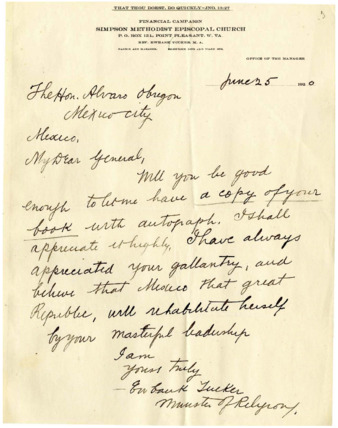 THAT THOU DOEST, DO QUICKLY—JNO. 13:27
FINANCIAL CAMPAIGN
SIMPSON METHODIST EPISCOPAL CHURCH
P. O. BOX 151, POINT PLEASANT, W. VA.
REV. EWBANK TUCKER, M. A.
OFFICE OF THE MANAGER
June 25 0
The Hon. Alvaro Obregon
Mexico City
Mexico,
My Dear General,
Will you be good
enough to let me have a copy of your
book with autograph. I shall
appreciate it highly. I have always
appreciated your gallantry, and
believe that Mexico that great
Republic, will rehabilitate herself
by your masterful leadership
I am
Yours truly
Ewbank Tucker
Minister of Religion.